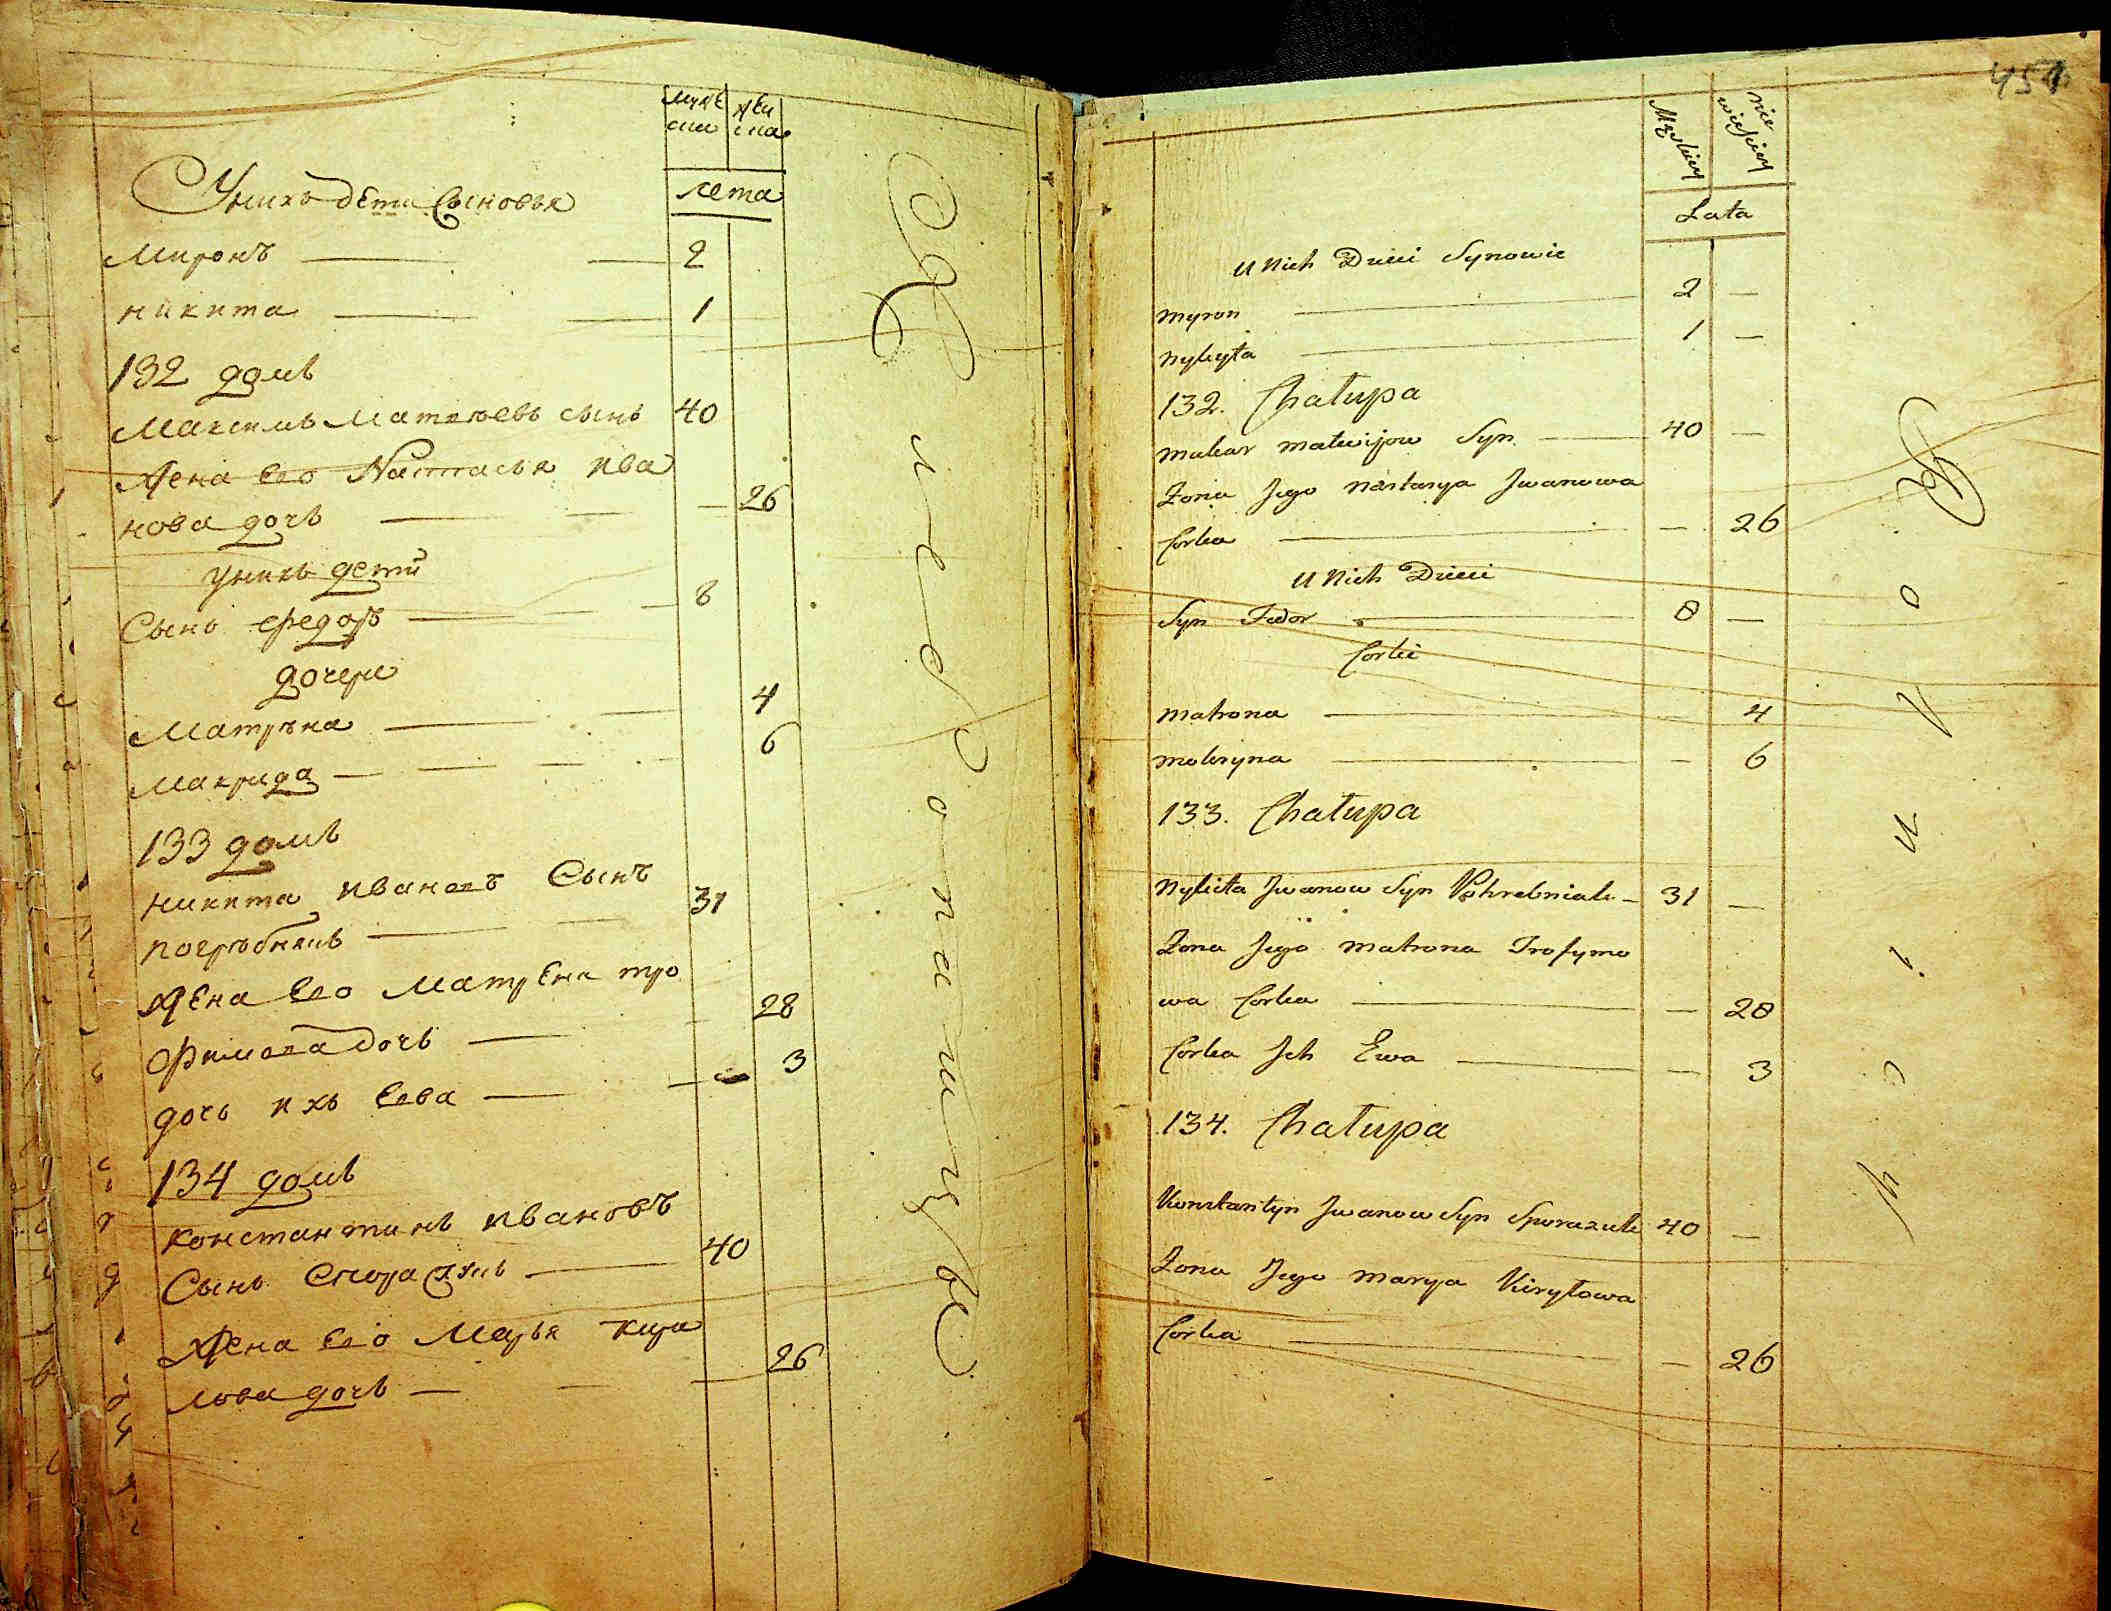 муже
ска
жен
ска
лета
Унихъ дети Сыновья
Миронъ 2
никита 1
132 домъ
Максимъ Матвъевъ сынъ 40
Жена Его Настасья ива
нова дочь 26
унихъ дети
Сынъ Федоръ 8
дочери
Матрьна 4
Макрида 6
133 домъ
никита ивановъ Сынъ 31
погрьбнякъ
Жена Его Матрена тро
фимова дочь 28
дочь ихъ Евва 3
134 домъ
константинъ ивановъ
Сынъ 40
Жена Его Марья кири
лова дочь 26
451
Męskiey
Nie
wieściey
Lata
U Nich Dzieci Synowie
Myron 2 —
Nykyta 1 —
132. Chałupa
Makar Matwijow Syn 40 —
Zona Jego Nastasya Jwanowa
Corka — 26
U Nich Dzieci
Syn Fedor 8 —
Corki
Matrona — 4
Mokryna — 6
133. Chałupa
Nykita Jwanow Syn Pohrebniak 31 —
Zona Jego Matrona Trofymo
wa Corka — 28
Corka Jch Ewa — 3
134. Chałupa
Konstantyn Jwanow Syn 40 —
Zona Jego Marya Kiryłowa
Corka — 26